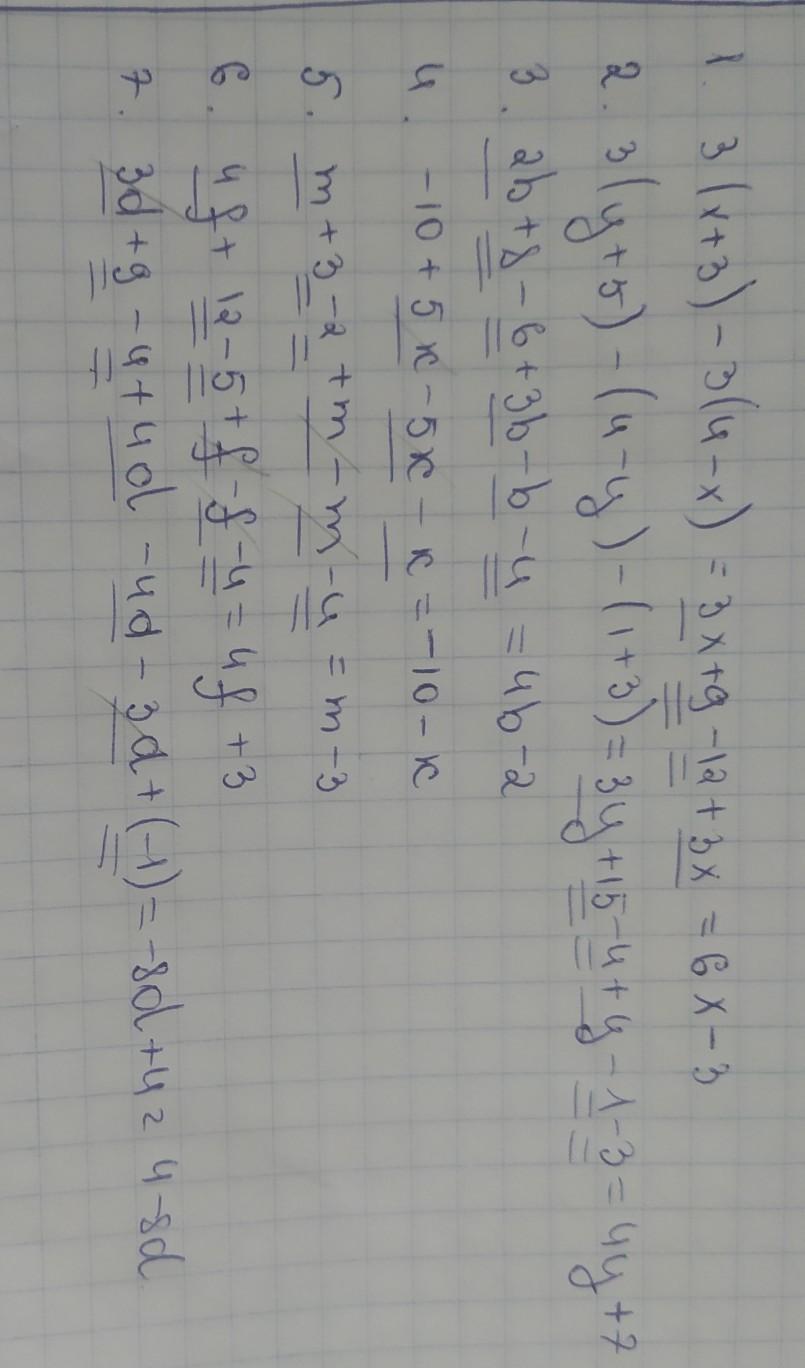 1. 3(x+3)-3(4-x)=3x+9-12+3x=6x-3
2. 3(y+5)-(4-y)-(1+3)=3y+15-4+y-1-3=4y+7
3. 2b+8-6+3b-b-4=4b-2
4. -10+5к-5к-к=-10-к
5. m+3-2+m-m-4=m-3
6. 4f+12-5+f-f-4=4f+3
7. 3d+9-4+4d-4d-3d+(-1)=-8d+4=4-8d